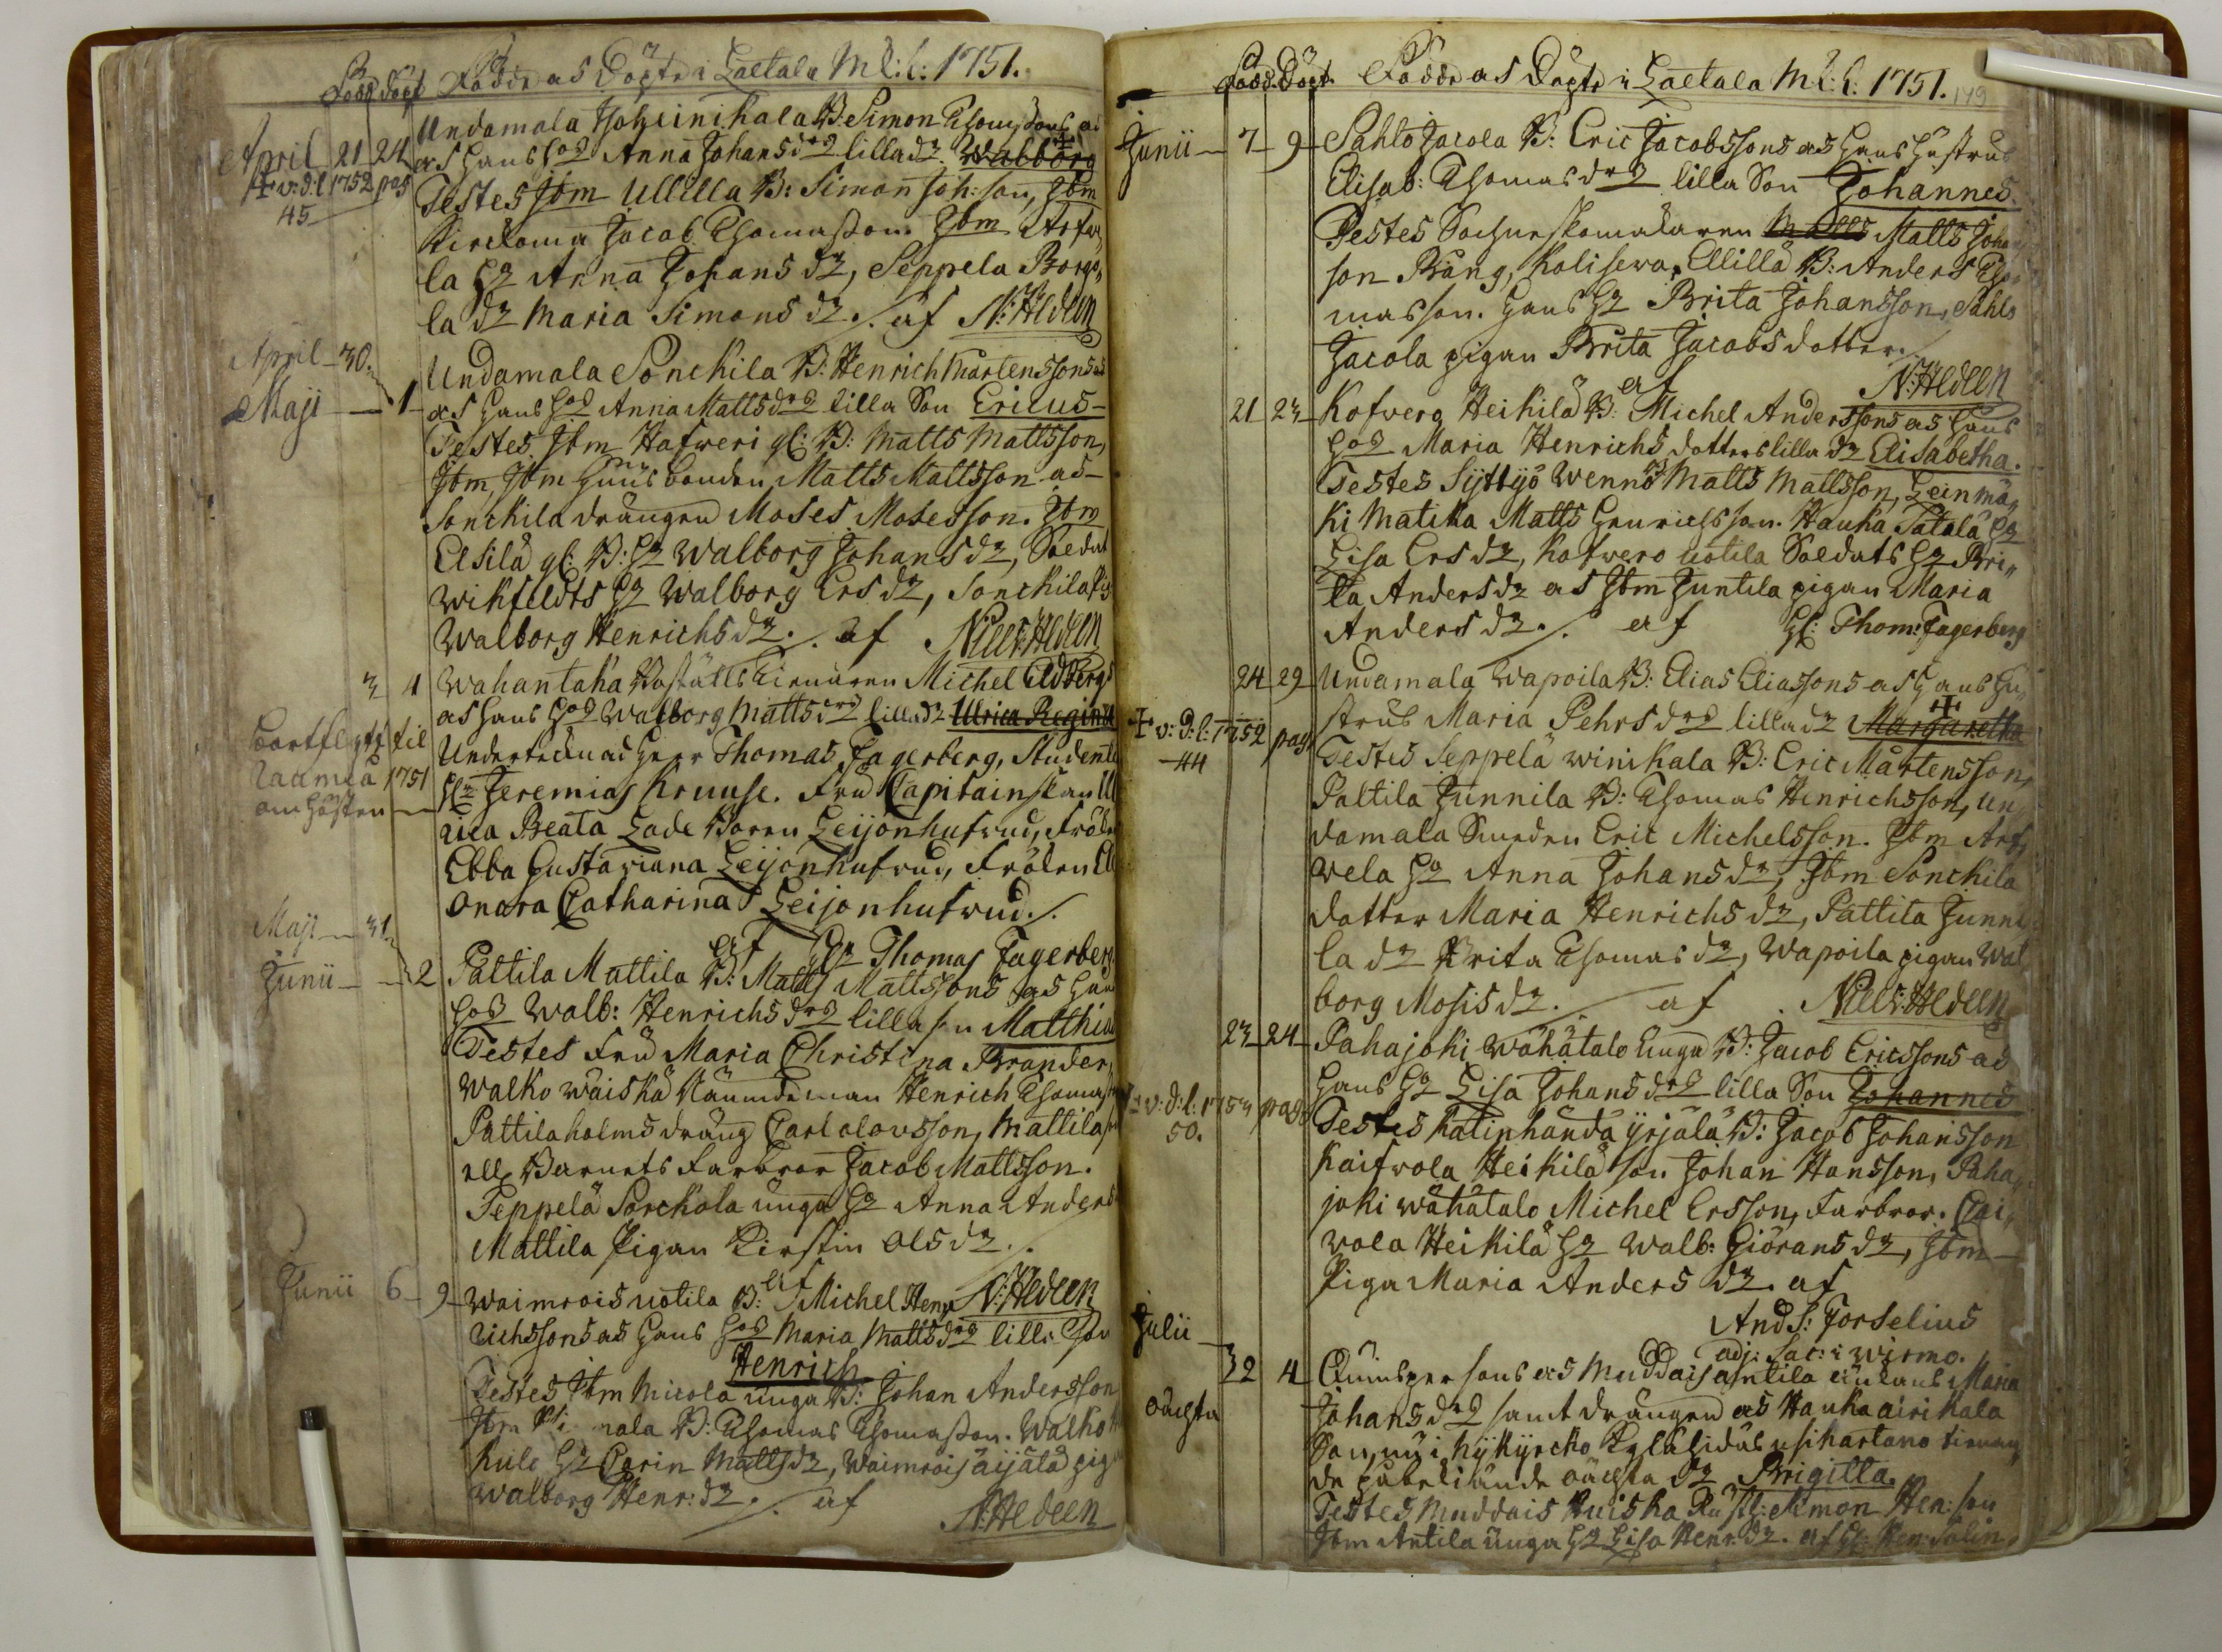 Född Döpt Födde as Döpte i Laetala M: l: 1751.
April 21 24 Undamala Heinikala B: Simon Thomssons
as Hans Hos Anna Johansdrs lilla dr Walborg
✝ v: d: l 1752 pag 45
Testes Ibm Ullilla B: Simon Joh: son, Ibm
Jacob Thomasson. Ibm Arfwe,,
la Ha Anna Johans dr, Seppela Borgo,,
la dr Maria Simons dr. af N: Hedeen
April 30. Undamala Sonckila B: Henrich Mårtenssons
Maji 1 as Hans Hos Anna Mattsdrs lilla Son Ericus
Testes Ibm Hafweri gl: B: Matts Mattsson,
Ibm, Ibm Huusbonden Matts Mattsson as
Sonckila drängen Moses Mosesson. Ibm
Elsilä gl: B: Ha Walborg Johans dr, Soldat
Wikfeldts Ha Walborg Ers dr, Sonckila
Walborg Henrichs dr. af Niels: Hedeen
3 4 Wahantaka Boställs Michel Eldbergs
as Hans Hos Walborg Mattsdrs lilla dr Ulrica Regina
bortflytt til Raumå 1751 om hösten
Undertecknad Herr Thomas Fagerberg, Studenten
Hr Jeremias Kruuse. Fru Capitainskan Ul
rica Beata Lade Boren Leijonhufwud, Fröken
Ebba Gustaviana Leijonhufwud, Fröken El
onora Catharina Leijonhufwud.
af Hr Thomas Fagerberg
Maji 31.
Junii 2 Pattila Mattila B: Matts Mattssons as Hans
Hos Walb: Henrichsdrs lilla son Matthias
Testes Fru Maria Christina Brander,
Walko Waiska Nämndeman Henrich Thomasson
Pattilaholms dräng Carl Olovsson, Mattila
all Barnets Farbror Jacob Mattsson.
Peppelä Sorckola unga Ha Anna Anders
Mattila Pigan Kirstin Ols dr.
af N: Hedeen
Junii 6 9 Waimrois uotila B: Michel Hen
richssons as Hans Hos Maria Mattsdrs lilla Son
Henrich
Testes Ibm Micola unga B: Johan Andersson
Ibm nala B: Thomas Thomasson. Walko
Kulo Ha Carin Matts dr, Waimrois äijälä pigan
Walborg Henr: dr. af
N: Hedeen
Född. Döpt. Födde as Döpte i Laetala M: l: 1751. 149
Junii 7 9 Sahlo Jacola B: Eric Jacobssons as Hans Hustrus
Elisab: Thomasdrs lilla Son Johannes.
Testes Sochneskomakaren Matts Matts Johan
son Bång, Kolisewa, Ellilä B: Anders Tho,,
masson. Hans Ha Brita Johansson, Sahlo
Jacola pigan Brita Jacobsdotter.
af N: Hedeen
21 23 Kofwero Heikilä B: Michel Anderssons as Hans
Hos Maria Henrichs dotters lilla dr Elisabetha.
Testes Sÿttyö Wenno Matts Mattsson, Leinmä,,
ki Matika Matts Henrichsson. Hauka Satala Ha
Lisa Ers dr, Kofwero uotila Soldats Ha Bri,,
ta Anders dr as Ibm Juntila pigan Maria
Anders dr. af Hl: Thom: Fagerberg
24 29 Undamala Wapoila B: Elias Eliassons as Hans Hu
strus Maria Pehrsdrs lilla dr Margaretha
✝ v: d: l: 1752 pag 44
Testes Seppelä Winikala B: Eric Mårtensson,
Paltila Junnila B: Thomas Henrichsson, Un
damala Smeden Eric Michelsson. Ibm Arf,,
wela Ha Anna Johans dr, Ibm Sonckila
dotter Maria Henrichs dr, Pattila Junni
la dr Brita Thomas dr, Wapoila pigan Wal
borg Mosis dr. af Niels: Hedeen
23 24 Pahajoki Wähätalo unga B: Jacob Ericssons as
Hans Ha Lisa Johansdrs lilla Son Johannes
✝ v: d: l: 1753 pag 50.
Testes Katinhända Yrjälä B: Jacob Johansson
Kaifwola Heikilä son Johan Hansson, Paha,,
joki Wähätalo Michel Ersson, Farbror. Cai,,
wola Heikilä Ha Walb: Giörans dr, Ibm
Piga Maria Anders dr. af
And S: Forselius
adj: Sac: i Wirmo.
Julii 32 4 Quinspersons as Muddais antila Maria
oächta Johansdrs samt drängen as Hauka airikala
Son, nu i Nykyrcko usikartano tienan,,
de oächta dr Brigitta.
Testes Muddais Huiska Simon Hen: son
Ibm Antila unga Ha Lisa Henr: dr. af Hl: Hen: Salin